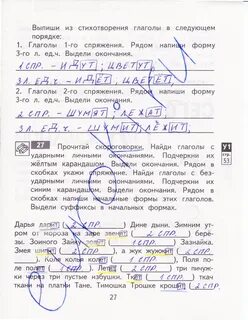 Выпиши из стихотворения глаголы в следующем
порядке:
1. Глаголы 1-го спряжения. Рядом напиши форму
3-го л. ед.ч. Выдели окончания.
1 СПР. - ИДУТ, ЦВЕТУТ
3 Л. ЕД.Ч. - ИДЁТ, ЦВЕТЁТ
2. Глаголы 2-го спряжения. Рядом напиши форму
3-го л. ед.ч. Выдели окончания.
2 СПР. - ШУМЯТ, ЛЕЖАТ
3 Л. ЕД.Ч. - ШУМИТ, ЛЕЖИТ
27 Прочитай скороговорки. Найди глаголы с
ударными личными окончаниями. Подчеркни их
жёлтым карандашом. Выдели окончания. Рядом в
скобках укажи спряжение. Найди глаголы с без-
ударными личными окончаниями. Подчеркни их
синим карандашом. Выдели окончания. Рядом в
скобках напиши начальные формы этих глаголов.
Выдели суффиксы в начальных формах.
У1
стр.
53
Дарья дарит (2 СПР.) Дине дыни. Зимним ут-
ром от мороза на заре звенят (2 СПР.) бере-
зы. Зоиного Зайку зовут (1 СПР.) Зазнайка.
Змея (2 СПР.), а жук жужжит (2
СПР.). Коля колья (1 СПР.). Поля по-
ле (1 СПР.). Летят (2 СПР.) три пичуж-
ки через три пустые избушки. Ткёт (1 СПР.) ткач
ткани на платки Тане. Тимошка Трошке крошит (2 СПР.)
27